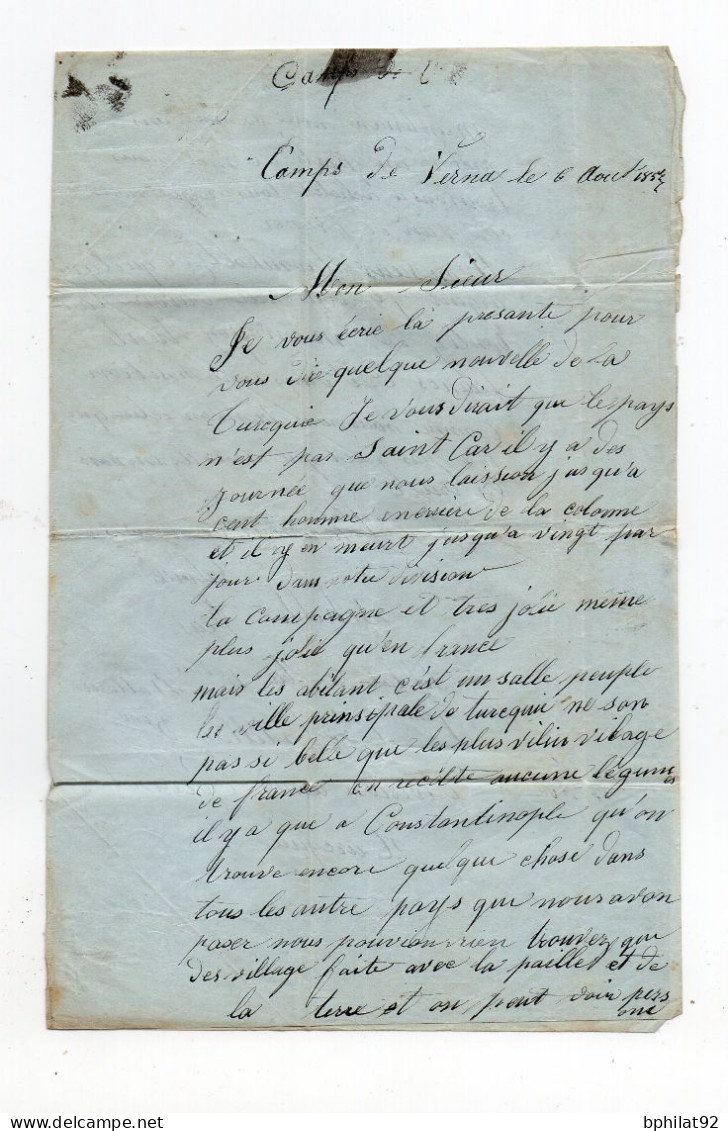 Camps de
Camps De Verna le 6 Aout 1854
Mon Sieur
Je vous écrie la presante pour
vous dire quelque nouvelle de La
Turcquie Je vous dirait que le pays
n'est pas Saint Car il y a des
journée que nous laission jusqu'a
cent homme enersière de la colonne
et il y en meurt jusqu'a vingt par
jour dans notre division
la campagne et tres jolie meme
plus jolie qu'en france
mais les abitant c'est un salle peuple
les ville prinsipale de turcquie ne son
pas si belle que les plus vilin vilage
de france on récolte aucune légumes
il y a que a Constantinople qu'on
trouve encore quelque chose dans
tous les autre pays que nous avon
passer nous pouvion rien trouver que
des village faite avec la paille et de
la terre et on peut voir pers
onne
bphilat92